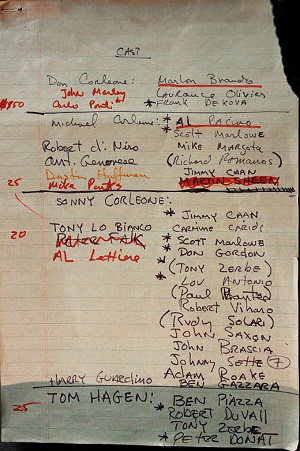 CAST
Don Corleone: Marlon Brando
John Marley Laurence Olivier
Carlo Ponti * FRANK DE KOVA
Michael Corleone: * AL PACINO
* Scott Marlowe
Robert di Niro Mike Margota
Aust. Genovese (Richard Romanos)
Dustin Hoffman JIMMY CAAN
Mike Parks MARTIN SHEEN
25
SONNY CORLEONE:
* JIMMY CAAN
TONY LO BIANCO CARMINE CARIDI
20 PETER FALK * SCOTT MARLOWE
AL Lettieri * DON GORDON
* (TONY ZERBE)
* LOU ANTONIO
(Paul
Robert Viharo
(RUDY SOLARI)
JOHN SAXON
JOHN BRASCIA
Johnny Sette ?
Adam Roake
HARRY GUARDINO BEN GAZZARA
TOM HAGEN: * BEN PIAZZA
25 * ROBERT DUVALL
TONY ZERBE
* PETER DONAT